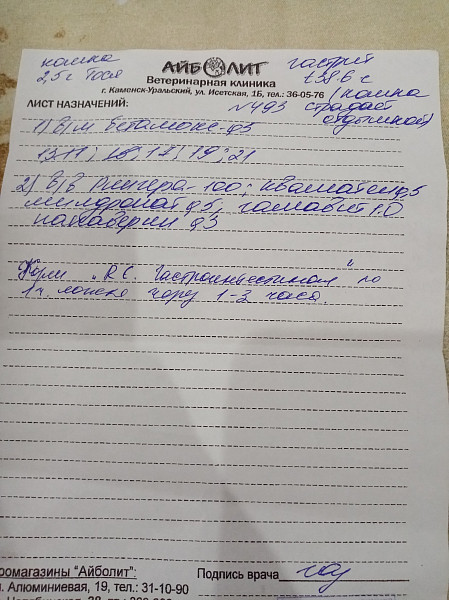 кошка
2,5 г Тося
гастрит
t 38.6 с
АЙБОЛИТ
Ветеринарная клиника
г. Каменск-Уральский, ул. Исетская, 1Б, тел.: 36-05-76
(кошка
страдает
отдышкой)
№493
ЛИСТ НАЗНАЧЕНИЙ:
1) В/м бетамокс - 0,5
13.11; 15, 17, 19, 21
2) В/В Рингера - 100; квамател 0,5
милдронат 0,5, гамавит 1.0
папаверин 0,3
Корм „R.C. Гастроинтестинал" по
1 ч. ложке через 1-3 часа.
Подпись врача
омагазины "Айболит":
Алюминиевая, 19, тел.: 31-10-90